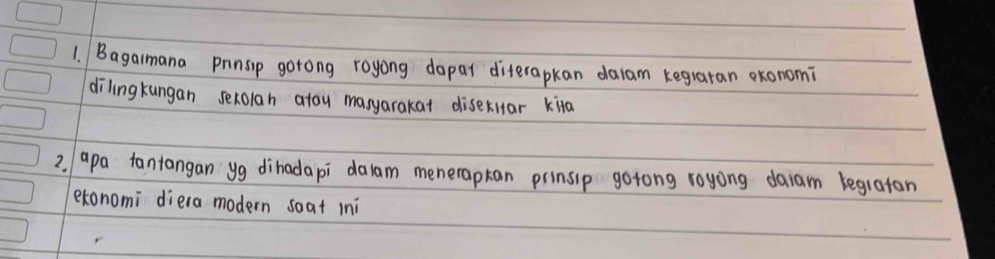 1. Bagaimana prinsip gotong royong dapat diterapkan dalam kegiatan ekonomi
dilingkungan sekolah atau masyarakat disekitar kita
2. apa tantangan yg dihadapi dalam menerapkan prinsip gotong royong dalam kegiatan
ekonomi diera modern saat ini